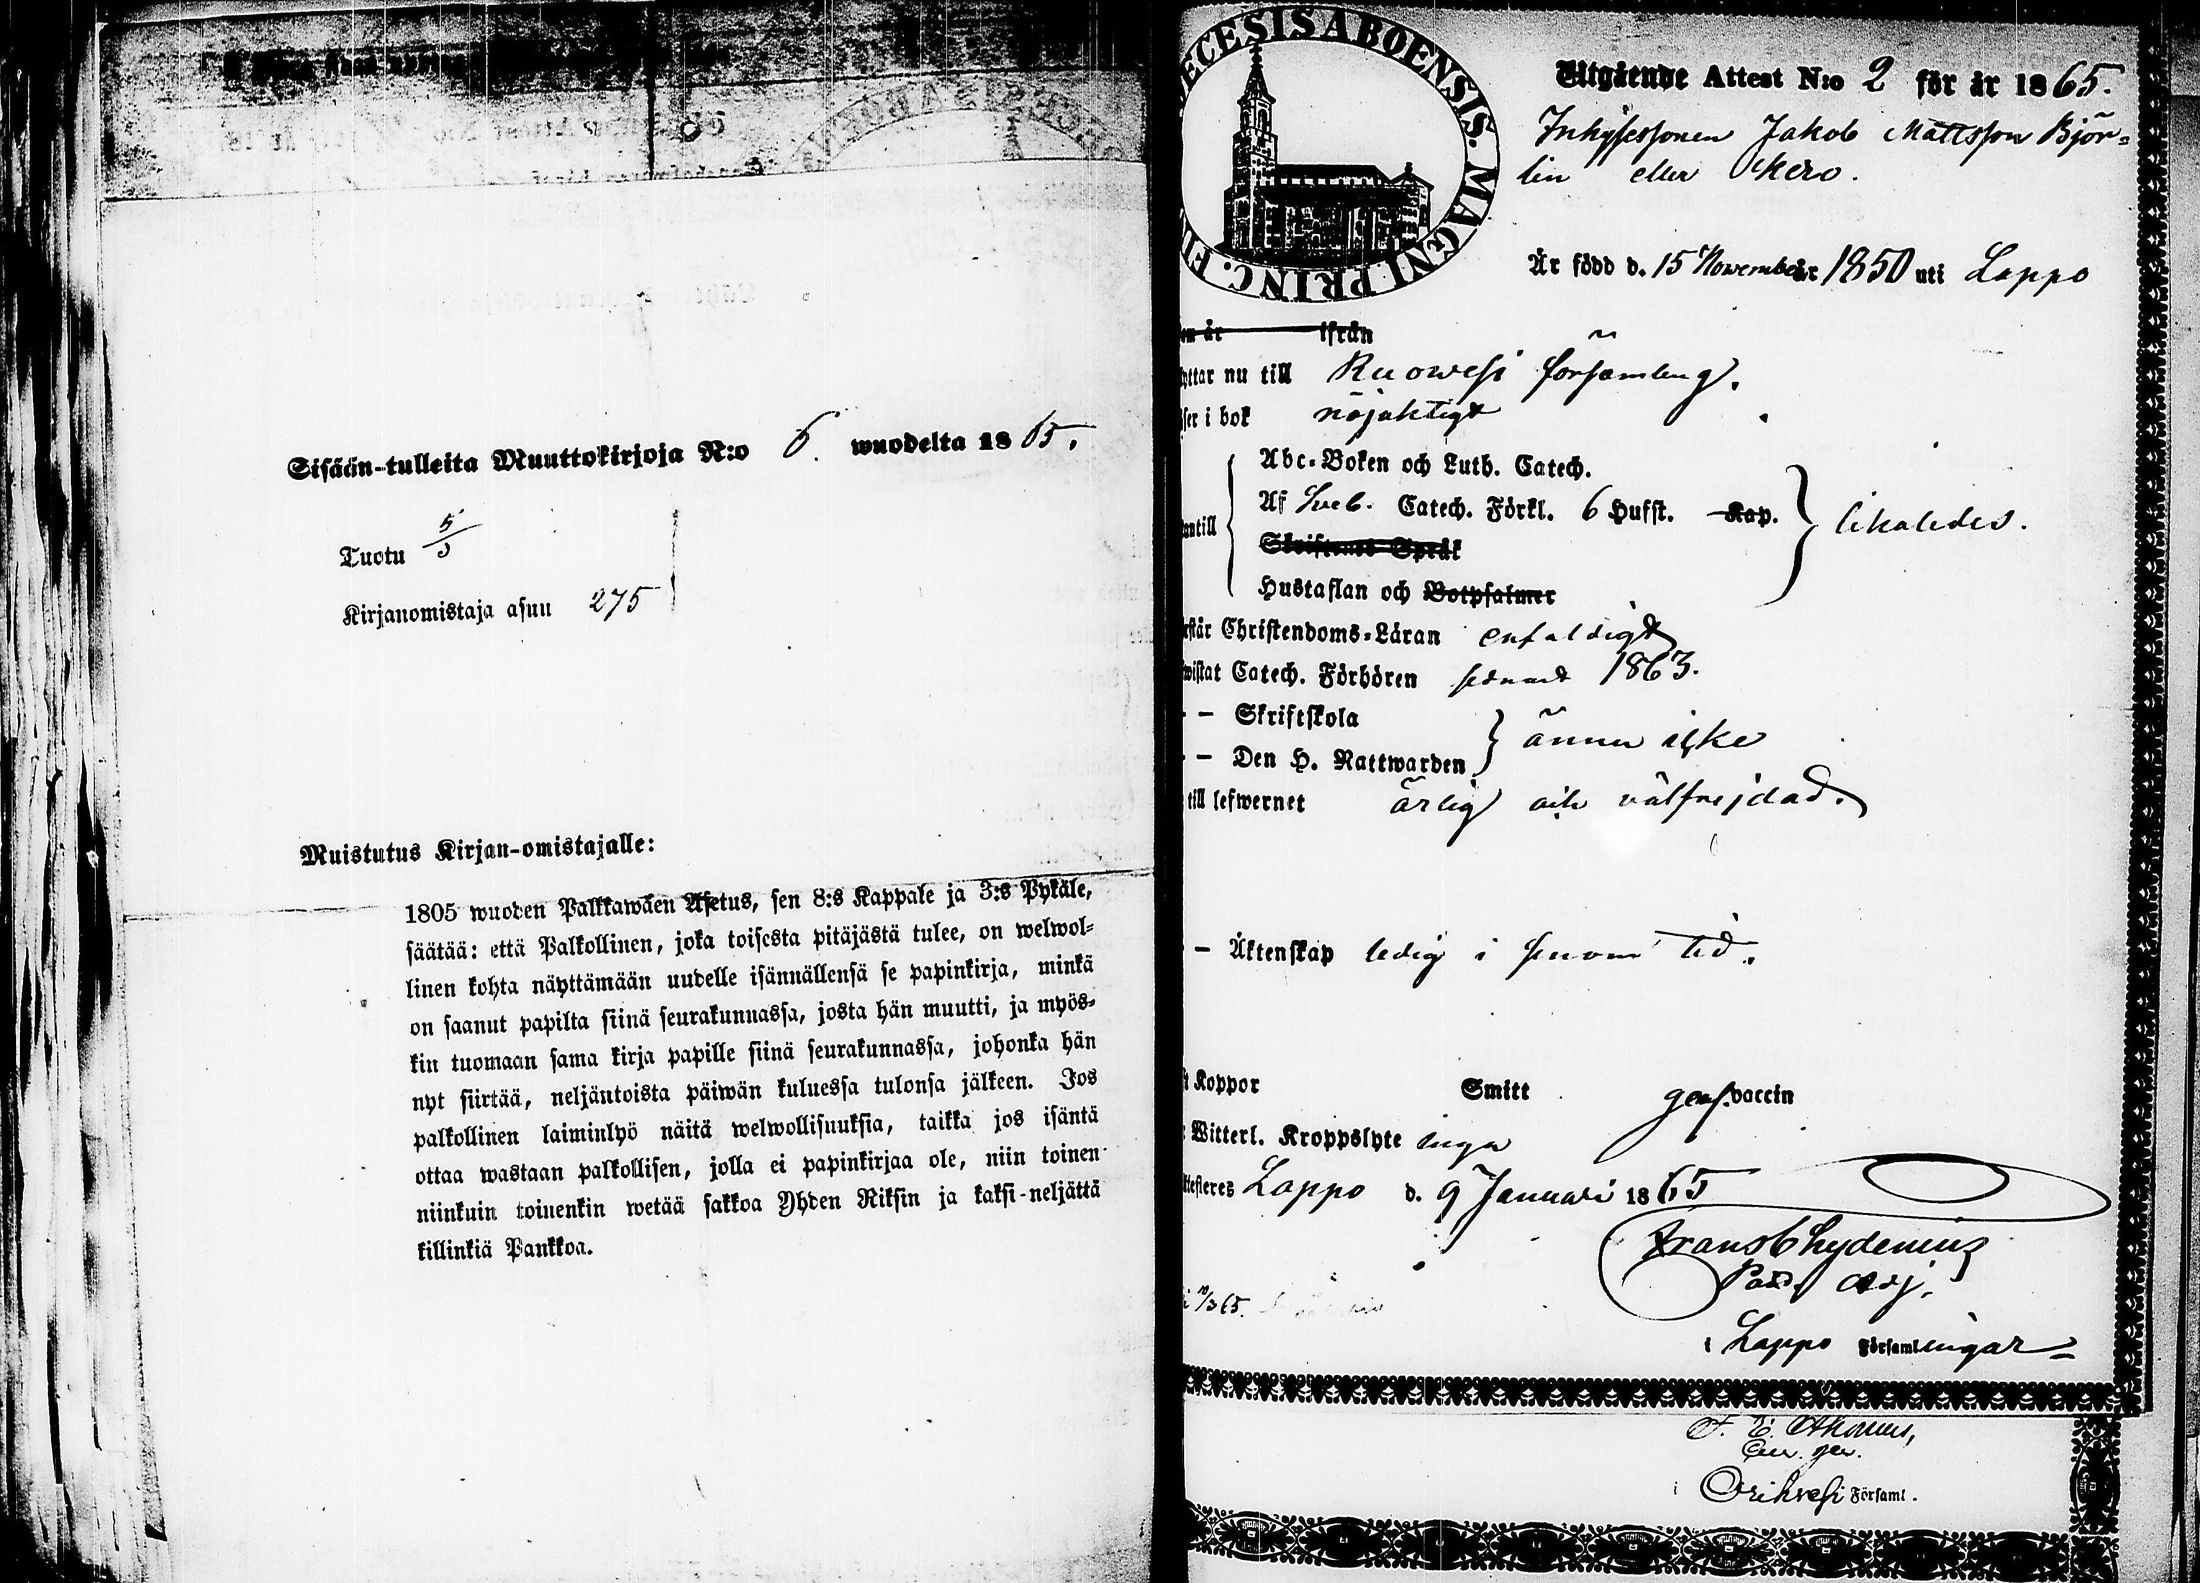 Sisään-tulleita Muuttokirjoja N:o 6. wuodelta 1865.
Tuotu 5/3
Kirjanomistaja asuu 275
Muistutus Kirjan-omistajalle:
1805 wuoden Palkkawäen Asetus, sen 8:s Kappale ja 3:s Pykäle,
säätää: että Palkollinen, joka toisesta pitäjästä tulee, on welwol-
linen kohta näyttämään uudelle isännällensä se papinkirja, minkä
on saanut papilta siinä seurakunnassa, josta hän muutti, ja myös-
kin tuomaan sama kirja papille siinä seurakunnassa, johonka hän
nyt siirtää, neljäntoista päiwän kuluessa tulonsa jälkeen. Jos
palkollinen laiminlyö näitä welwollisuuksia, taikka jos isäntä
ottaa wastaan palkollisen, jolla ei papinkirjaa ole, niin toinen
niinkuin toinenkin wetää sakkoa Yhden Riksin ja kaksi-neljättä
killinkiä Pankkoa.
ECESIS ABOENSIS. MAGNI PRINC. FI
Utgående Attest N:o 2 för år 1865.
Inhysessonen Jakob Mattsson Björ-
lin eller Kero.
Är född d. 15 November år 1850 uti Lappo
om år ifrån
yttar nu till Ruowesi församling.
ser i bok nöjaktigt
Abc-Boken och Luth. Catech.
antill Af Sveb. Catech. Förkl. 6 Hufst. Kap. likaledes.
Skriftenes Språk
Hustaflan och Botpsalmer
rstår Christendoms-Läran enfaldigt
wistat Catech. Förhören sednast 1863.
- - Skriftskola
- - Den H. Nattwarden ännu icke
till lefwernet ärlig och välfrejdad.
- Äktenskap ledig i genom tid.
t Koppor Smitt genf. vaccin
Witterl. Kroppslyte inga
ttesteres Lappo d. 9 Januari 1865
Frans Chydenius
Past. Adj.
i Lappo Församlingar
10/3 65.
i Orihvesi Församl.